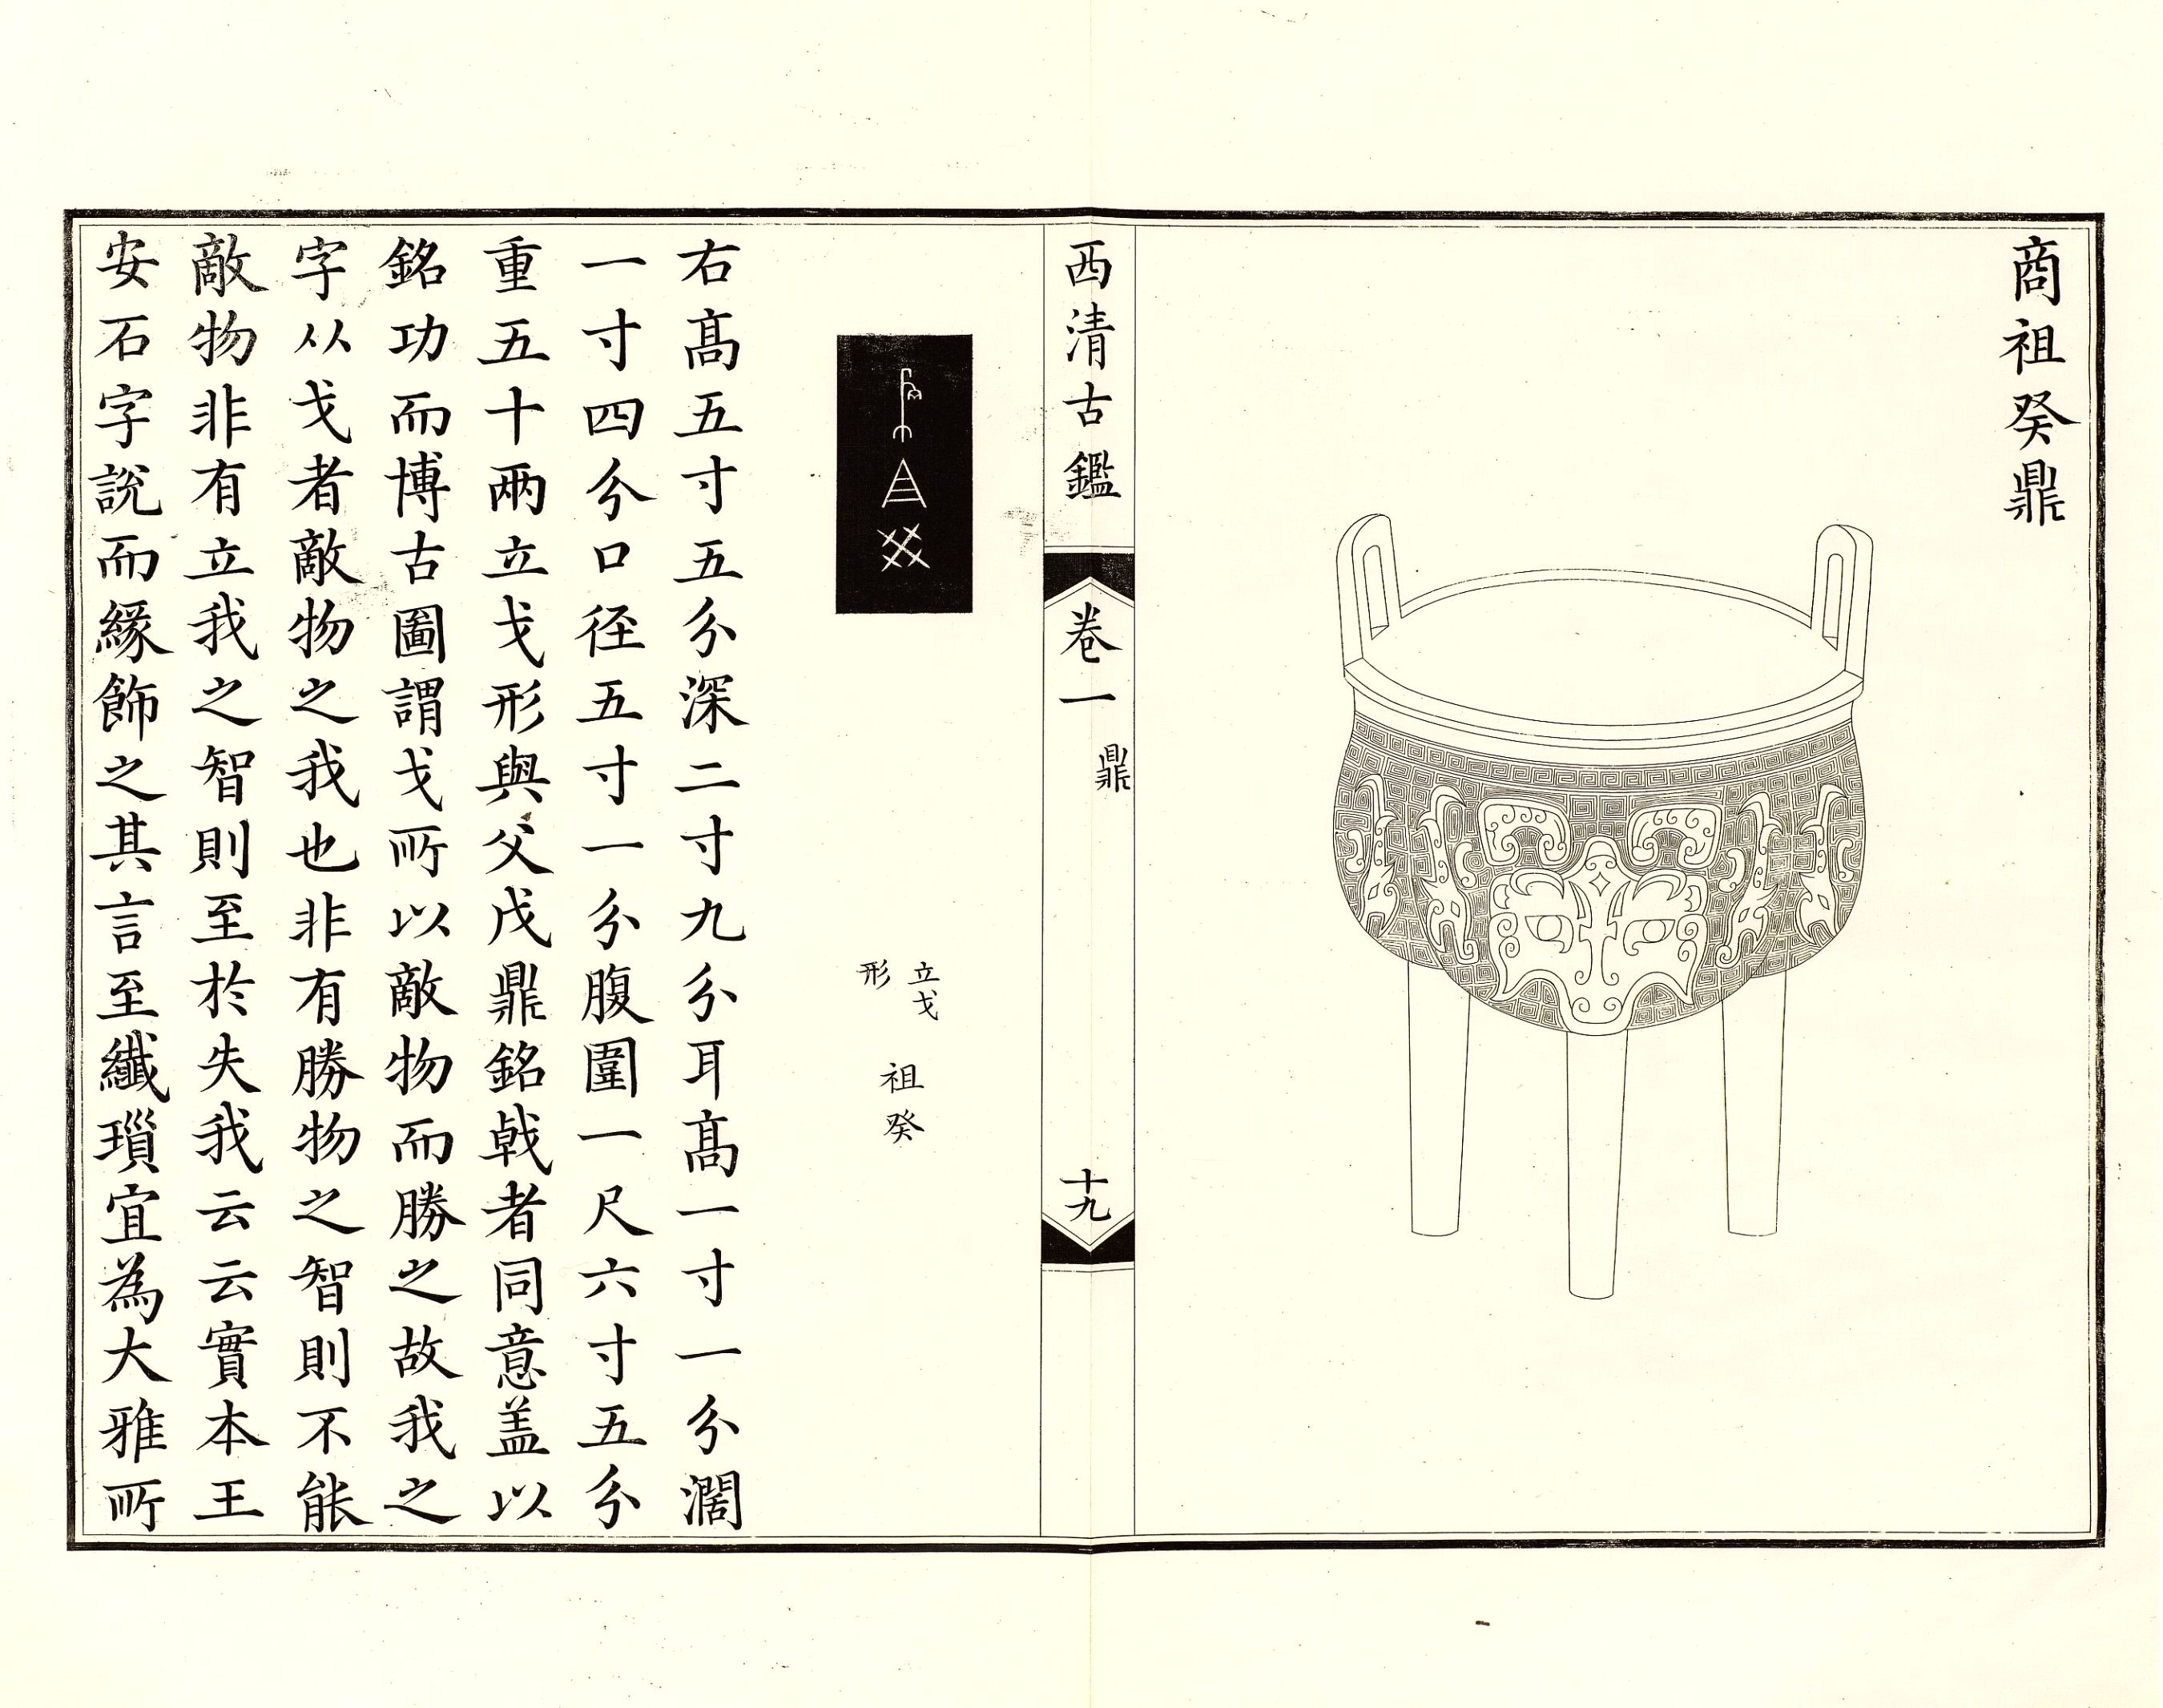 商祖癸鼎
西清古鑑
卷一
鼎
十九
立戈
形
祖癸
右高五寸五分深二寸九分耳高一寸一分濶
一寸四分口徑五寸一分腹圍一尺六寸五分
重五十兩立戈形與父戊鼎銘戟者同意盖以
銘功而博古圖謂戈所以敵物而勝之故我之
字从戈者敵物之我也非有勝物之智則不能
敵物非有立我之智則至於失我云云實本王
安石字說而緣飾之其言至纖瑣宜為大雅所